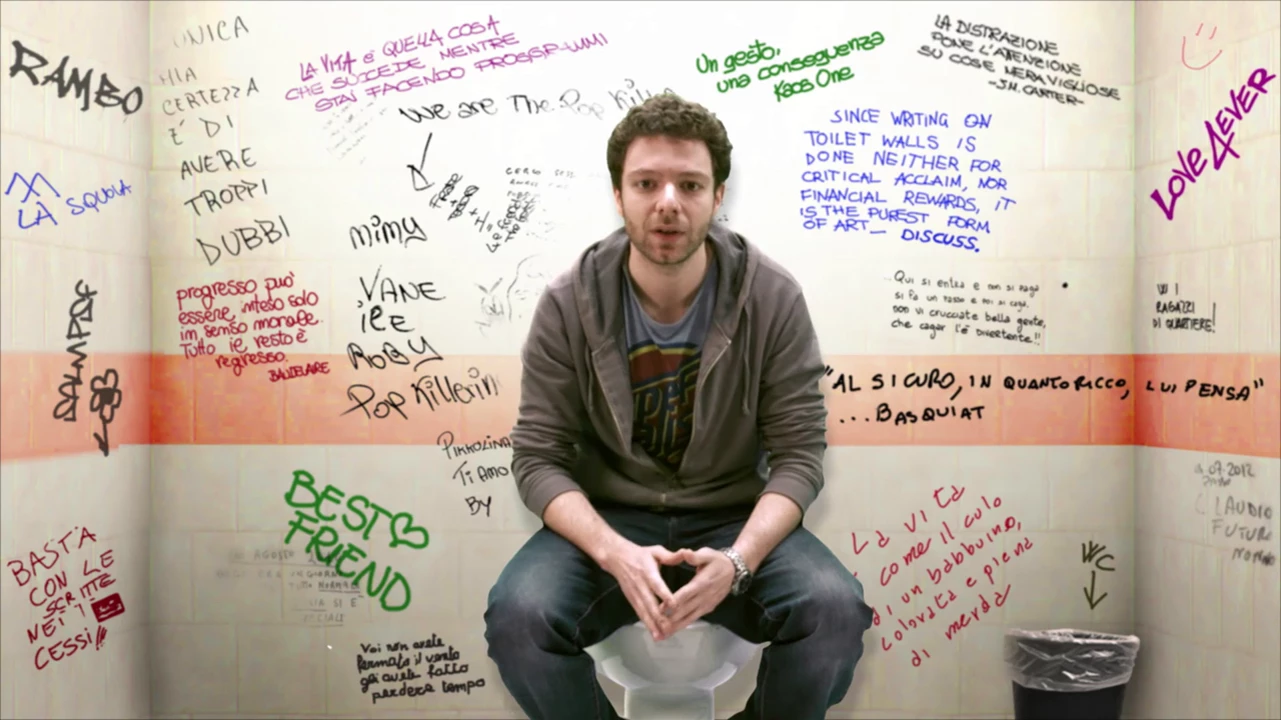 RAMBO
LA SQUOLA
DALMPDF
BASTA
CON LE
SCRITTE
NEI
CESSI!!
UNICA
MIA
CERTEZZA
E' DI
AVERE
TROPPI
DUBBI
progresso può'
essere inteso solo
im senso morale.
Tutto il resto è
regresso.
BAUDELAIRE
LA VITA è QUELLA COSA
CHE SUCCEDE MENTRE
STAI FACENDO PROGRAMMI
We are The Pop Killer
mimy
VANE
iLE
ROBY
Pop Killerin
PIKKOLINA
TI AMO
BY
BEST
FRIEND
AGOSTO
Voi non avete
fermato il vento
gli avete fatto
perdere tempo
Un gesto,
una conseguenza
Kaos One
LA DISTRAZIONE
PONE L'ATENZIONE
SU COSE MERAVIGLIOSE
-J.N. CARTER-
SINCE WRITING ON
TOILET WALLS IS
DONE NEITHER FOR
CRITICAL ACCLAIM, NOR
FINANCIAL REWARDS, IT
IS THE PUREST FORM
OF ART_ DISCUSS.
Qui si entra e non si paga
si fa un passo e poi si caga,
non vi crucciate bella gente,
che cagar l'è divertente!!
"AL SICURO, IN QUANTO RICCO, LUI PENSA"
...BASQUIAT
La vita
come il culo
di un babbuino,
colorata e piena
di merda
WC
LOVE4EVER
W I
RAGAZZI
DI QUARTIERE!
07.2012
CLAUDIO
FUTURO
NONNO